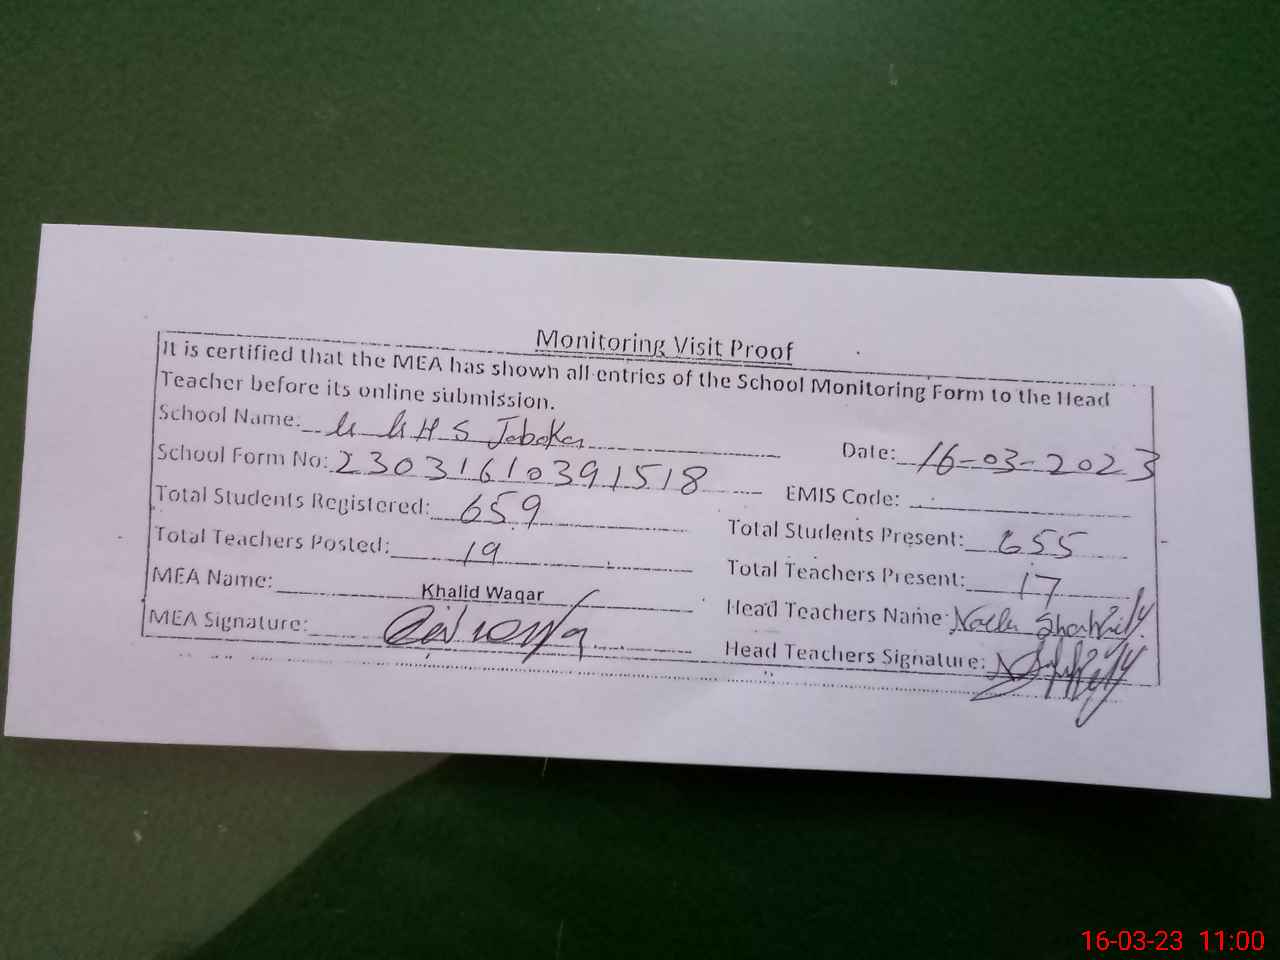 Monitoring Visit Proof
It is certified that the MEA has shown all entries of the School Monitoring Form to the Head
Teacher before its online submission.
School Name: H S Date: 16-03-2023
School Form No: 23031610391518 EMIS Code:
Total Students Registered: 659 Total Students Present: 655
Total Teachers Posted: 19 Total Teachers Present: 17
MEA Name: Khalid Waqar Head Teachers Name:
MEA Signature: Head Teachers Signature:
16-03-23 11:00